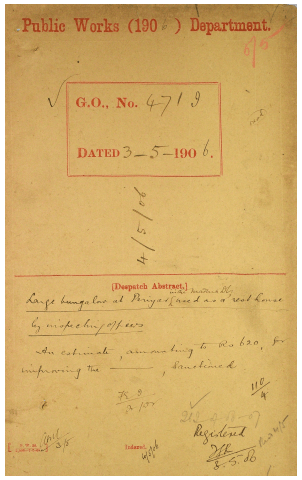 Public Works (1906) Department.
6/5
G.O., No. 4719
DATED 3-5-1906.
4/5/06
[Despatch Abstract.]
Large bungalow at Periyar used as a rest house
by inspecting officers
An estimate, amounting to Rs 620, for
improving the ———, Sanctioned
110/4
Registered
Indexed.
8.5.06